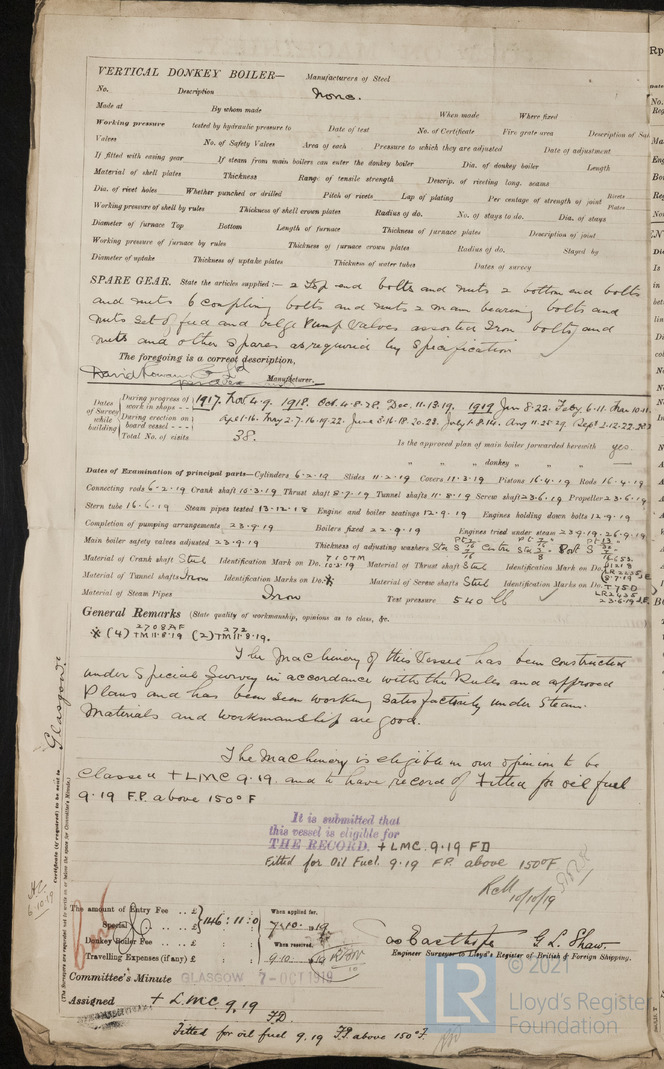 VERTICAL DONKEY BOILER— Manufacturers of Steel
No. Description None.
Made at By whom made When made Where fixed
Working pressure tested by hydraulic pressure to Date of test No. of Certificate Fire grate area Description of Saf
Valves No. of Safety Valves Area of each Pressure to which they are adjusted Date of adjustment
If fitted with easing gear If steam from main boilers can enter the donkey boiler Dia. of donkey boiler Length
Material of shell plates Thickness Range of tensile strength Descrip. of riveting long. seams
Dia. of rivet holes Whether punched or drilled Pitch of rivets Lap of plating Per centage of strength of joint Rivets Plates
Working pressure of shell by rules Thickness of shell crown plates Radius of do. No. of stays to do. Dia. of stays
Diameter of furnace Top Bottom Length of furnace Thickness of furnace plates Description of joint
Working pressure of furnace by rules Thickness of furnace crown plates Radius of do. Stayed by
Diameter of uptake Thickness of uptake plates Thickness of water tubes Dates of survey
SPARE GEAR. State the articles supplied:— 2 Top end bolts and nuts 2 bottom end bolts
and nuts 6 coupling bolts and nuts 2 main bearing bolts and
nuts set of feed and bilge Pump Valves assorted Iron bolts and
nuts and other spares as required by Specification
The foregoing is a correct description,
David Rowan & Co Ld Manufacturer.
Dates of Survey while building
During progress of work in shops - - 1917. Nov. 4.9. 1918. Oct. 4.8.28. Dec. 11.13.19. 1919 Jan 8.22. Feby. 6.11. Mar 10.11.
During erection on board vessel - - - Apl 1.16. May 2.7.16.19.22. June 3.16.18.20.23. July 1.8.14. Aug 11.25.29. Sept 2.12.22.23
Total No. of visits 38. Is the approved plan of main boiler forwarded herewith yes.
" " " donkey " " "
Dates of Examination of principal parts—Cylinders 6.2.19 Slides 11.2.19 Covers 11.3.19 Pistons 16.4.19 Rods 16.4.19
Connecting rods 6.2.19 Crank shaft 10.3.19 Thrust shaft 8.7.19 Tunnel shafts 11.8.19 Screw shaft 23.6.19 Propeller 23.6.19
Stern tube 16.6.19 Steam pipes tested 13.12.18 Engine and boiler seatings 12.9.19 Engines holding down bolts 12.9.19
Completion of pumping arrangements 23.9.19 Boilers fixed 22.9.19 Engines tried under steam 23.9.19. 26.9.19
Main boiler safety valves adjusted 23.9.19 Thickness of adjusting washers
Material of Crank shaft Steel Identification Mark on Do. 710TM 10.3.19 Material of Thrust shaft Steel Identification Mark on Do. LR2235 8.7.19
Material of Tunnel shafts Iron Identification Marks on Do. ※ Material of Screw shafts Steel Identification Marks on Do. T75D LR2435 23.6.19
Material of Steam Pipes Iron Test pressure 540 lb
General Remarks (State quality of workmanship, opinions as to class, &c.
※ (4) 2708AF TM 11.8.19 (2) 272 TM 11.8.19.
The Machinery of this Vessel has been constructed
under Special Survey in accordance with the Rules and approved
Plans and has been seen working satisfactorily under steam.
Materials and workmanship are good.
The Machinery is eligible in our opinion to be
classed + LMC 9.19 and to have record of Fitted for oil fuel
9.19 F.P. above 150° F
It is submitted that
this vessel is eligible for
THE RECORD. + LMC. 9.19 FD
Fitted for Oil Fuel. 9.19 F.P. above 150°F
10/10/19
Glasgow
Certificate (if required) to be sent to
(The Surveyors are requested not to write on or below the space for Committee's Minute.)
6.10.19
The amount of Entry Fee .. £ When applied for,
Special .. £ 146:11:0 7.10.1919
Donkey Boiler Fee .. £ When received,
Travelling Expenses (if any) £ 9.10.1919
G. L. Shaw.
Engineer Surveyor to Lloyd's Register of British & Foreign Shipping.
Committee's Minute GLASGOW 7-OCT 1919
Assigned + L.M.C. 9.19
F.D.
Fitted for oil fuel 9.19 F.P. above 150°F.
© 2021
LR
Lloyd's Register
Foundation